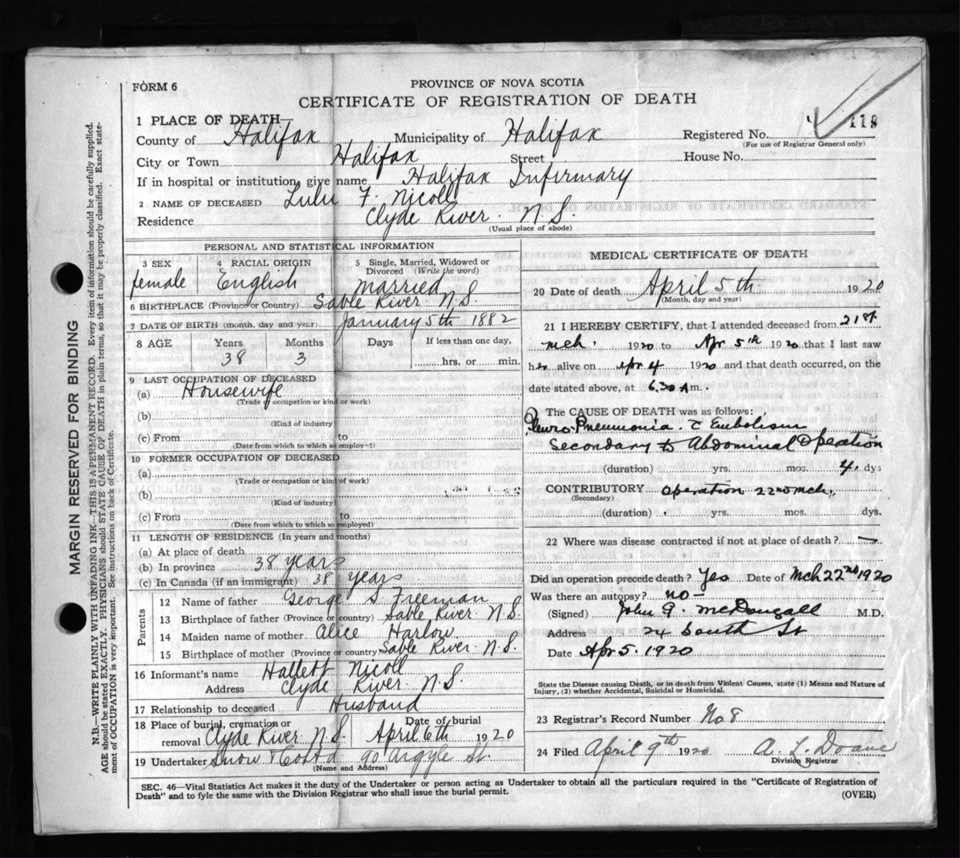 FORM 6
PROVINCE OF NOVA SCOTIA
CERTIFICATE OF REGISTRATION OF DEATH
1 PLACE OF DEATH
County of Halifax Municipality of Halifax Registered No. 118
(For use of Registrar General only)
City or Town Halifax Street House No.
If in hospital or institution, give name Halifax Infirmary
2 NAME OF DECEASED Lulu F. Nicoll
Residence Clyde River N.S.
(Usual place of abode)
PERSONAL AND STATISTICAL INFORMATION
3 SEX 4 RACIAL ORIGIN 5 Single, Married, Widowed or Divorced (Write the word)
female English married
6 BIRTHPLACE (Province or Country) Sable River N.S.
7 DATE OF BIRTH (month, day and year) January 5th 1882
8 AGE Years Months Days If less than one day,
38 3 hrs. or min.
9 LAST OCCUPATION OF DECEASED
(a) Housewife
(Trade, occupation or kind of work)
(b)
(Kind of industry)
(c) From to
(Date from which to which so employed)
10 FORMER OCCUPATION OF DECEASED
(a)
(Trade or occupation or kind of work)
(b)
(Kind of industry)
(c) From to
(Date from which to which so employed)
11 LENGTH OF RESIDENCE (In years and months)
(a) At place of death
(b) In province 38 years
(c) In Canada (if an immigrant) 38 years
Parents
12 Name of father George S. Freeman
13 Birthplace of father (Province or country) Sable River N.S.
14 Maiden name of mother Alice Harlow
15 Birthplace of mother (Province or country) Sable River N.S.
16 Informant's name Hallett Nicoll
Address Clyde River N.S.
17 Relationship to deceased Husband
18 Place of burial, cremation or removal Clyde River N.S. Date of burial April 6th 1920
19 Undertaker Snow & Co Ltd 90 Argyle St.
(Name and Address)
MEDICAL CERTIFICATE OF DEATH
20 Date of death April 5th 1920
(Month, day and year)
21 I HEREBY CERTIFY, that I attended deceased from 21st
mch. 1920 to Apr 5th 1920 that I last saw
her alive on Apr 4 1920 and that death occurred, on the
date stated above, at 6.30 A m.
The CAUSE OF DEATH was as follows:
Pleuro-Pneumonia c Embolism
Secondary to Abdominal Operation
(duration) yrs. mos. 4 dys
CONTRIBUTORY Operation 22nd mch.
(Secondary)
(duration) yrs. mos. dys.
22 Where was disease contracted if not at place of death? —
Did an operation precede death? Yes Date of Mch 22nd 1920
Was there an autopsy? no –
(Signed) John G. McDougall M.D.
Address 24 South St
Date Apr 5. 1920
State the Disease causing Death, or in death from Violent Causes, state (1) Means and Nature of
Injury, (2) whether Accidental, Suicidal or Homicidal.
23 Registrar's Record Number No 8
24 Filed April 9th 1920 A. L. Doane
Division Registrar
SEC. 46—Vital Statistics Act makes it the duty of the Undertaker or person acting as Undertaker to obtain all the particulars required in the "Certificate of Registration of
Death" and to fyle the same with the Division Registrar who shall issue the burial permit.
(OVER)
MARGIN RESERVED FOR BINDING
N.B.—WRITE PLAINLY WITH UNFADING INK—THIS IS A PERMANENT RECORD. Every item of information should be carefully supplied.
AGE should be stated EXACTLY. PHYSICIANS should STATE CAUSE OF DEATH in plain terms, so that it may be properly classified. Exact state-
ment of OCCUPATION is very important. See instructions on back of Certificate.